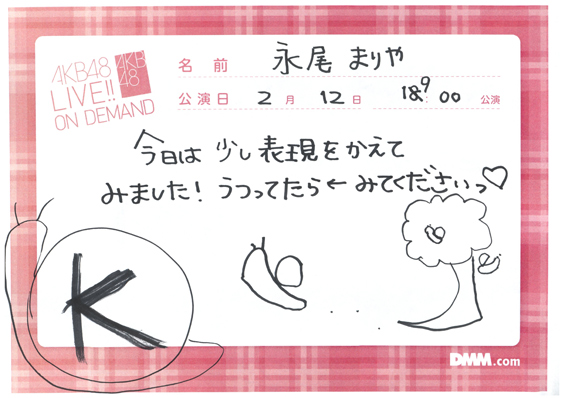 AKB48
LIVE!!
ON DEMAND
AKB
48
名前 永尾 まりや
公演日 2月 12日 19:00 公演
今日は 少し 表現をかえて
みました! うつってたら← みてくださいっ♡
K
DMM.com